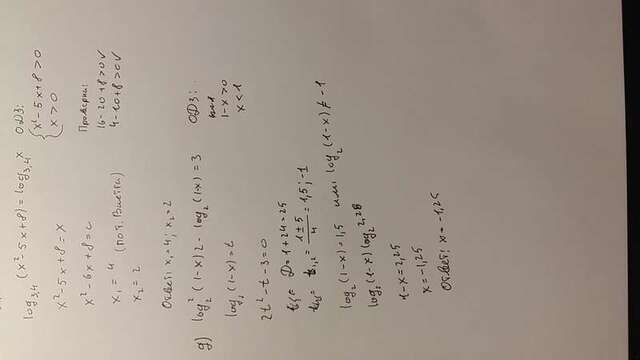 log₃,₄ (x²-5x+8) = log₃,₄ x
ОДЗ:
{ x²-5x+8>0
x>0
x²-5x+8=x
x²-6x+8=0
x₁ = 4 (по т. Виета)
x₂ = 2
Проверка:
16-20+8>0 ✓
4-10+8>0 ✓
Ответ: x₁=4; x₂=2
g) log₂² (1-x) 2 - log₂ (1-x) = 3
ОДЗ:
1-x>0
x<1
log₂ (1-x) = t
2t²-t-3=0
D=1+24=25
t₁,₂ = (1±5)/4 = 1,5; -1
log₂ (1-x) = 1,5 или log₂ (1-x) ≠ -1
log₂ (1-x) log₂
1-x=2,25
x=-1,25
Ответ: x=-1,25